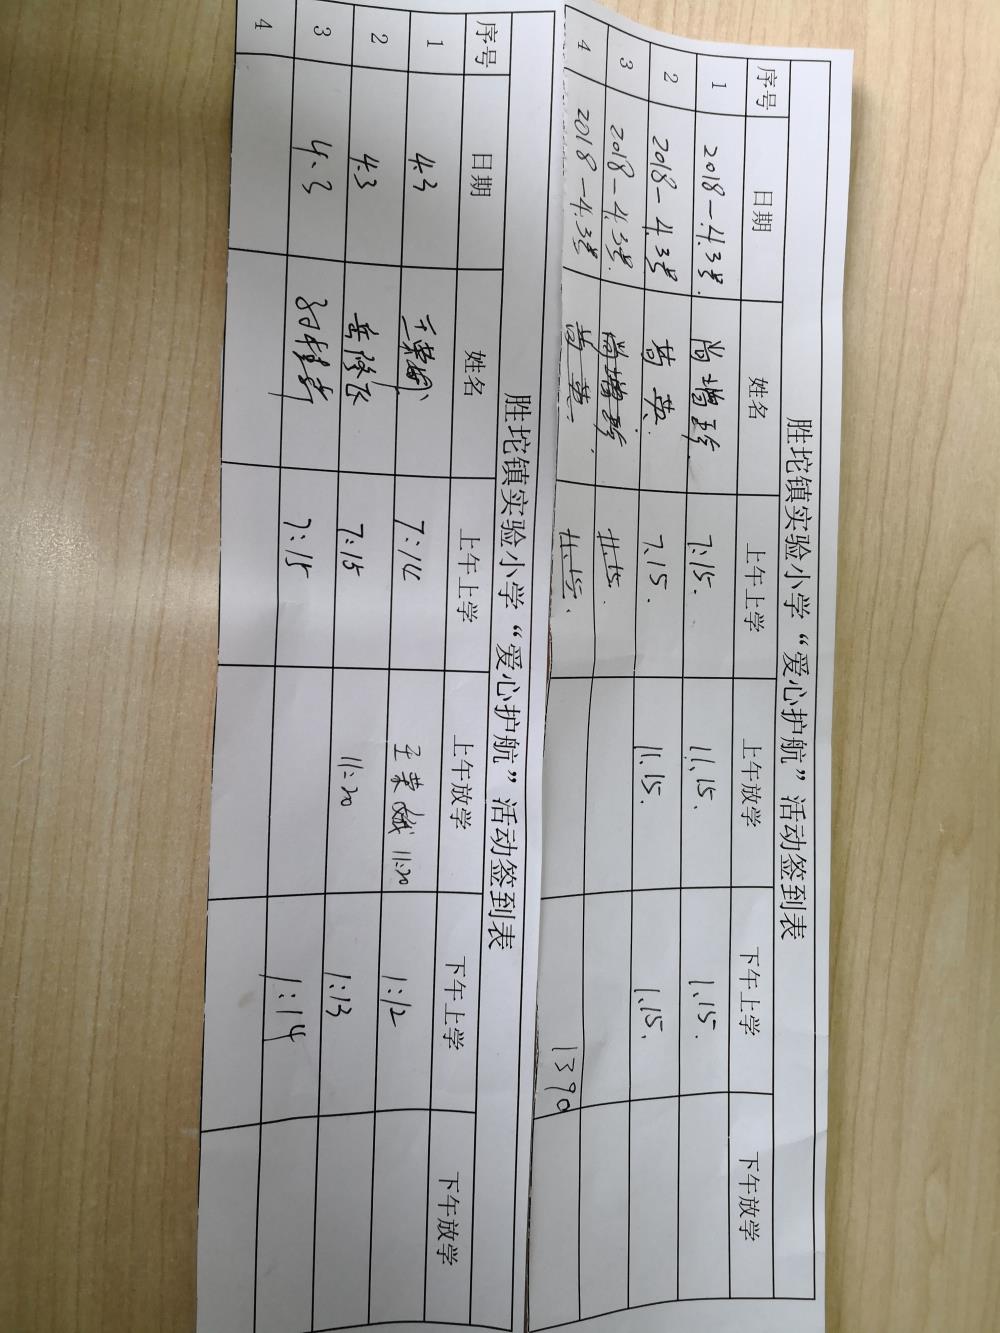 胜坨镇实验小学“爱心护航”活动签到表
序号 日期 姓名 上午上学 上午放学 下午上学 下午放学
1 2018-4.3号. 尚增珍. 7:15. 11.15. 1.15.
2 2018-4.3号 黄英. 7.15. 11.15. 1.15.
3 2018-4.3号. 尚增珍 11.15.
4 2018-4.3号 黄英. 11.15. 1390
胜坨镇实验小学“爱心护航”活动签到表
序号 日期 姓名 上午上学 上午放学 下午上学 下午放学
1 4.3 7:14 王荣娥 11:20 1:12
2 4.3 7:15 11:20 1:13
3 4.3 7:15 1:14
4